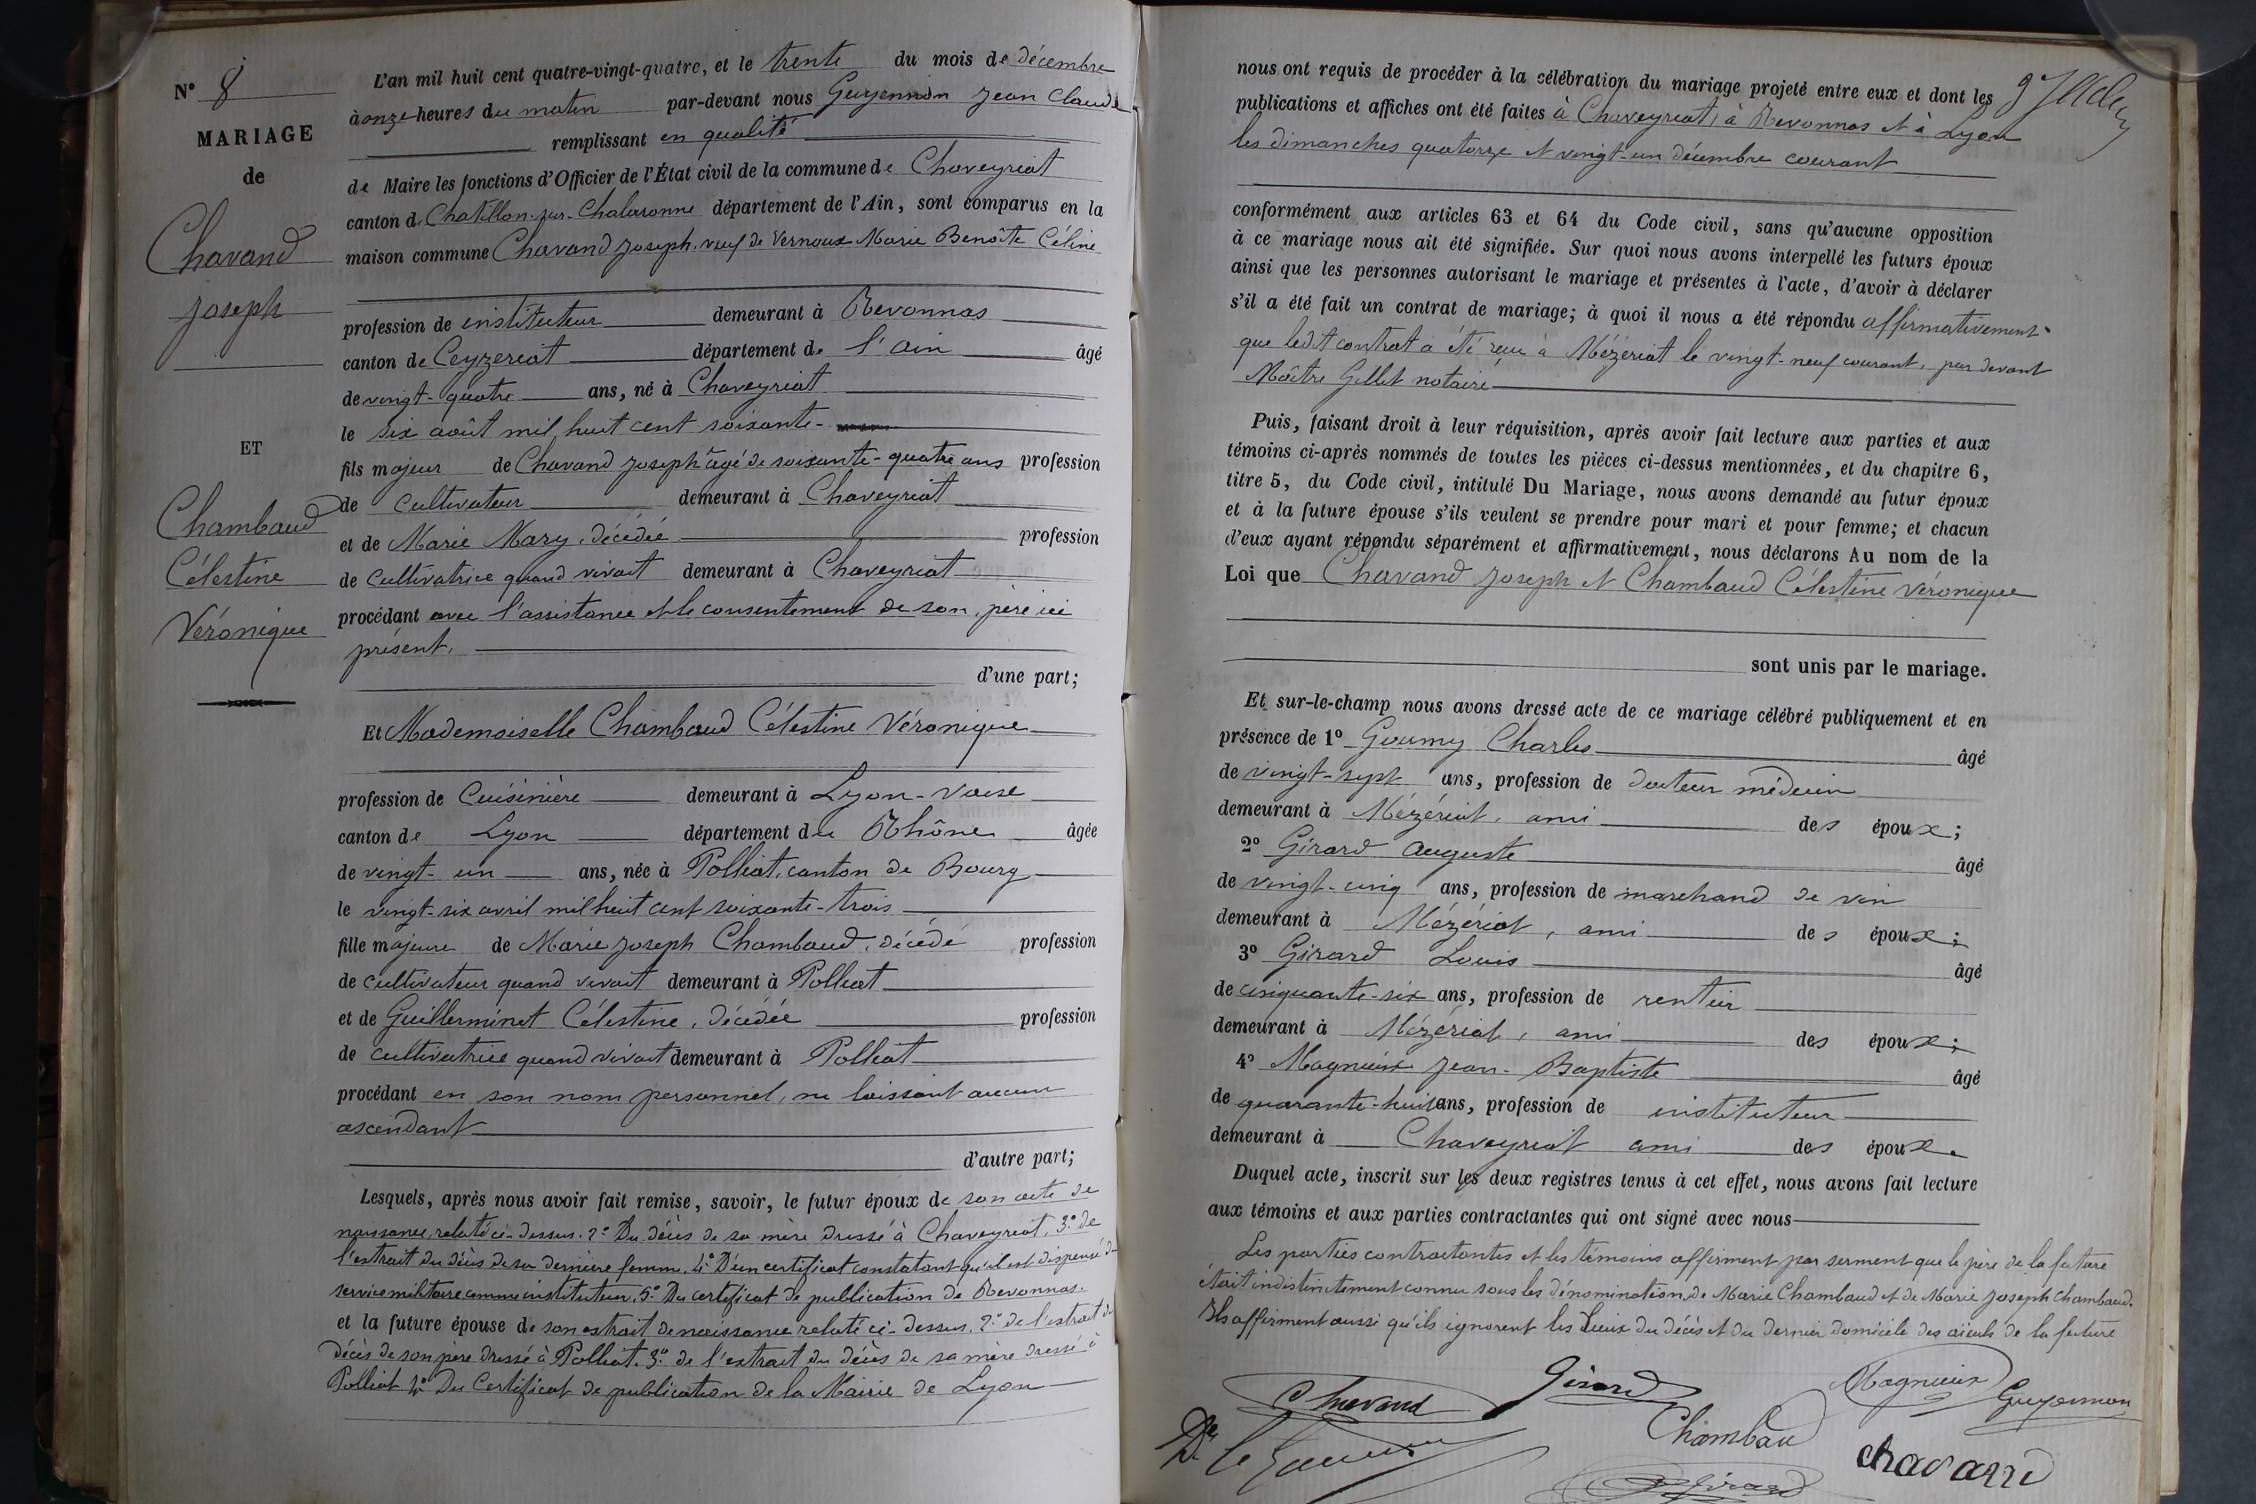 N° 8
MARIAGE
de
Chavand
Joseph
ET
Chambaud
Célestine
Véronique
L'an mil huit cent quatre-vingt-quatre, et le trente du mois de décembre
à onze heures du matin par-devant nous Guyennon Jean Claude
remplissant en qualité
de Maire les fonctions d'Officier de l'État civil de la commune de Chaveyriat
canton de Chatillon-sur-Chalaronne département de l'Ain, sont comparus en la
maison commune Chavand Joseph, veuf de Vernoux Marie Benoîte Céline
profession de instituteur demeurant à Revonnas
canton de Ceyzeriat département de l'ain âgé
de vingt-quatre ans, né à Chaveyriat
le six août mil huit cent soixante-
fils majeur de Chavand Joseph âgé de soixante-quatre ans profession
de cultivateur demeurant à Chaveyriat
et de Marie Mary, décédée profession
de cultivatrice quand vivait demeurant à Chaveyriat
procédant avec l'assistance et le consentement de son père ici
présent.
d'une part;
Et Mademoiselle Chambaud Célestine Véronique
profession de Cuisinière demeurant à Lyon-Vaise
canton de Lyon département du Rhône âgée
de vingt-un ans, née à Polliat, canton de Bourg
le vingt-six avril mil huit cent soixante-trois
fille majeure de Marie Joseph Chambaud, décédé profession
de cultivateur quand vivait demeurant à Polliat
et de Guillerminet Célestine, décédée profession
de cultivatrice quand vivait demeurant à Polliat
procédant en son nom personnel, ne laissant aucun
ascendant
d'autre part;
Lesquels, après nous avoir fait remise, savoir, le futur époux de son acte de
naissance, relaté ci-dessus. 2° Du décès de sa mère dressé à Chaveyriat, 3° de
l'extrait du décès de sa dernière femme. 4° D'un certificat constatant qu'il est dispensé du
service militaire comme instituteur, 5° Du certificat de publication de Revonnas.
et la future épouse de son extrait de naissance relaté ci-dessus. 2° de l'extrait du
décès de son père dressé à Polliat. 3° de l'extrait du décès de sa mère dressé à
Polliat 4° Du Certificat de publication de la Mairie de Lyon
nous ont requis de procéder à la célébration du mariage projeté entre eux et dont les
publications et affiches ont été faites à Chaveyriat, à Revonnas et à Lyon
les dimanches quatorze et vingt-un décembre courant
conformément aux articles 63 et 64 du Code civil, sans qu'aucune opposition
à ce mariage nous ait été signifiée. Sur quoi nous avons interpellé les futurs époux
ainsi que les personnes autorisant le mariage et présentes à l'acte, d'avoir à déclarer
s'il a été fait un contrat de mariage; à quoi il nous a été répondu affirmativement
que ledit contrat a été reçu à Mézériat le vingt-neuf courant, par devant
Maître Gillet notaire
Puis, faisant droit à leur réquisition, après avoir fait lecture aux parties et aux
témoins ci-après nommés de toutes les pièces ci-dessus mentionnées, et du chapitre 6,
titre 5, du Code civil, intitulé Du Mariage, nous avons demandé au futur époux
et à la future épouse s'ils veulent se prendre pour mari et pour femme; et chacun
d'eux ayant répondu séparément et affirmativement, nous déclarons Au nom de la
Loi que Chavand Joseph et Chambaud Célestine Véronique
sont unis par le mariage.
Et sur-le-champ nous avons dressé acte de ce mariage célébré publiquement et en
présence de 1° Goumy Charles âgé
de vingt-sept ans, profession de docteur médecin
demeurant à Mézériat, ami des époux;
2° Girard Auguste âgé
de vingt-cinq ans, profession de marchand de vin
demeurant à Mézériat, ami des époux;
3° Girard Louis âgé
de cinquante-six ans, profession de rentier
demeurant à Mézériat, ami des époux;
4° Magnieux Jean-Baptiste âgé
de quarante-huit ans, profession de instituteur
demeurant à Chaveyriat ami des époux.
Duquel acte, inscrit sur les deux registres tenus à cet effet, nous avons fait lecture
aux témoins et aux parties contractantes qui ont signé avec nous
Les parties contractantes et les témoins affirment par serment que le père de la future
était indistinctement connu sous les dénomination de Marie Chambaud et de Marie Joseph Chambaud.
Ils affirment aussi qu'ils ignorent les lieux du décès et du dernier domicile des aïeuls de la future
Chavand Girard Magnieux Guyennon
Chambau
chavand
Girard